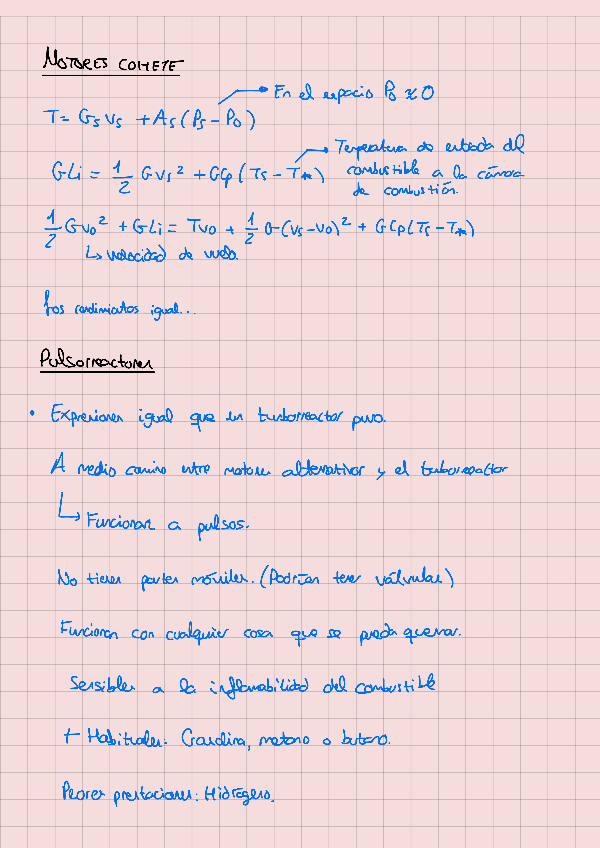 MOTORES COHETE
En el espacio P₀ ≈ 0
T = Gs Vs + As (Ps - P₀)
Temperatura de entrada del
combustible a la cámara
de combustión.
GLi = 1/2 G Vs² + GCp (Ts - T*)
1/2 G V₀² + GLi = T V₀ + 1/2 G (Vs - V₀)² + GCp (Ts - T*)
↳ velocidad de vuelo.
Los rendimientos igual...
Pulsorreactores
• Expresiones igual que en turborreactor puro.
A medio camino entre motores alternativos y el turborreactor
↳ Funcionan a pulsos.
No tienen partes móviles. (Podrían tener válvulas)
Funcionan con cualquier cosa que se pueda quemar.
Sensibles a la inflamabilidad del combustible
+ Habituales: Gasolina, metano o butano.
Peores prestaciones: Hidrógeno.